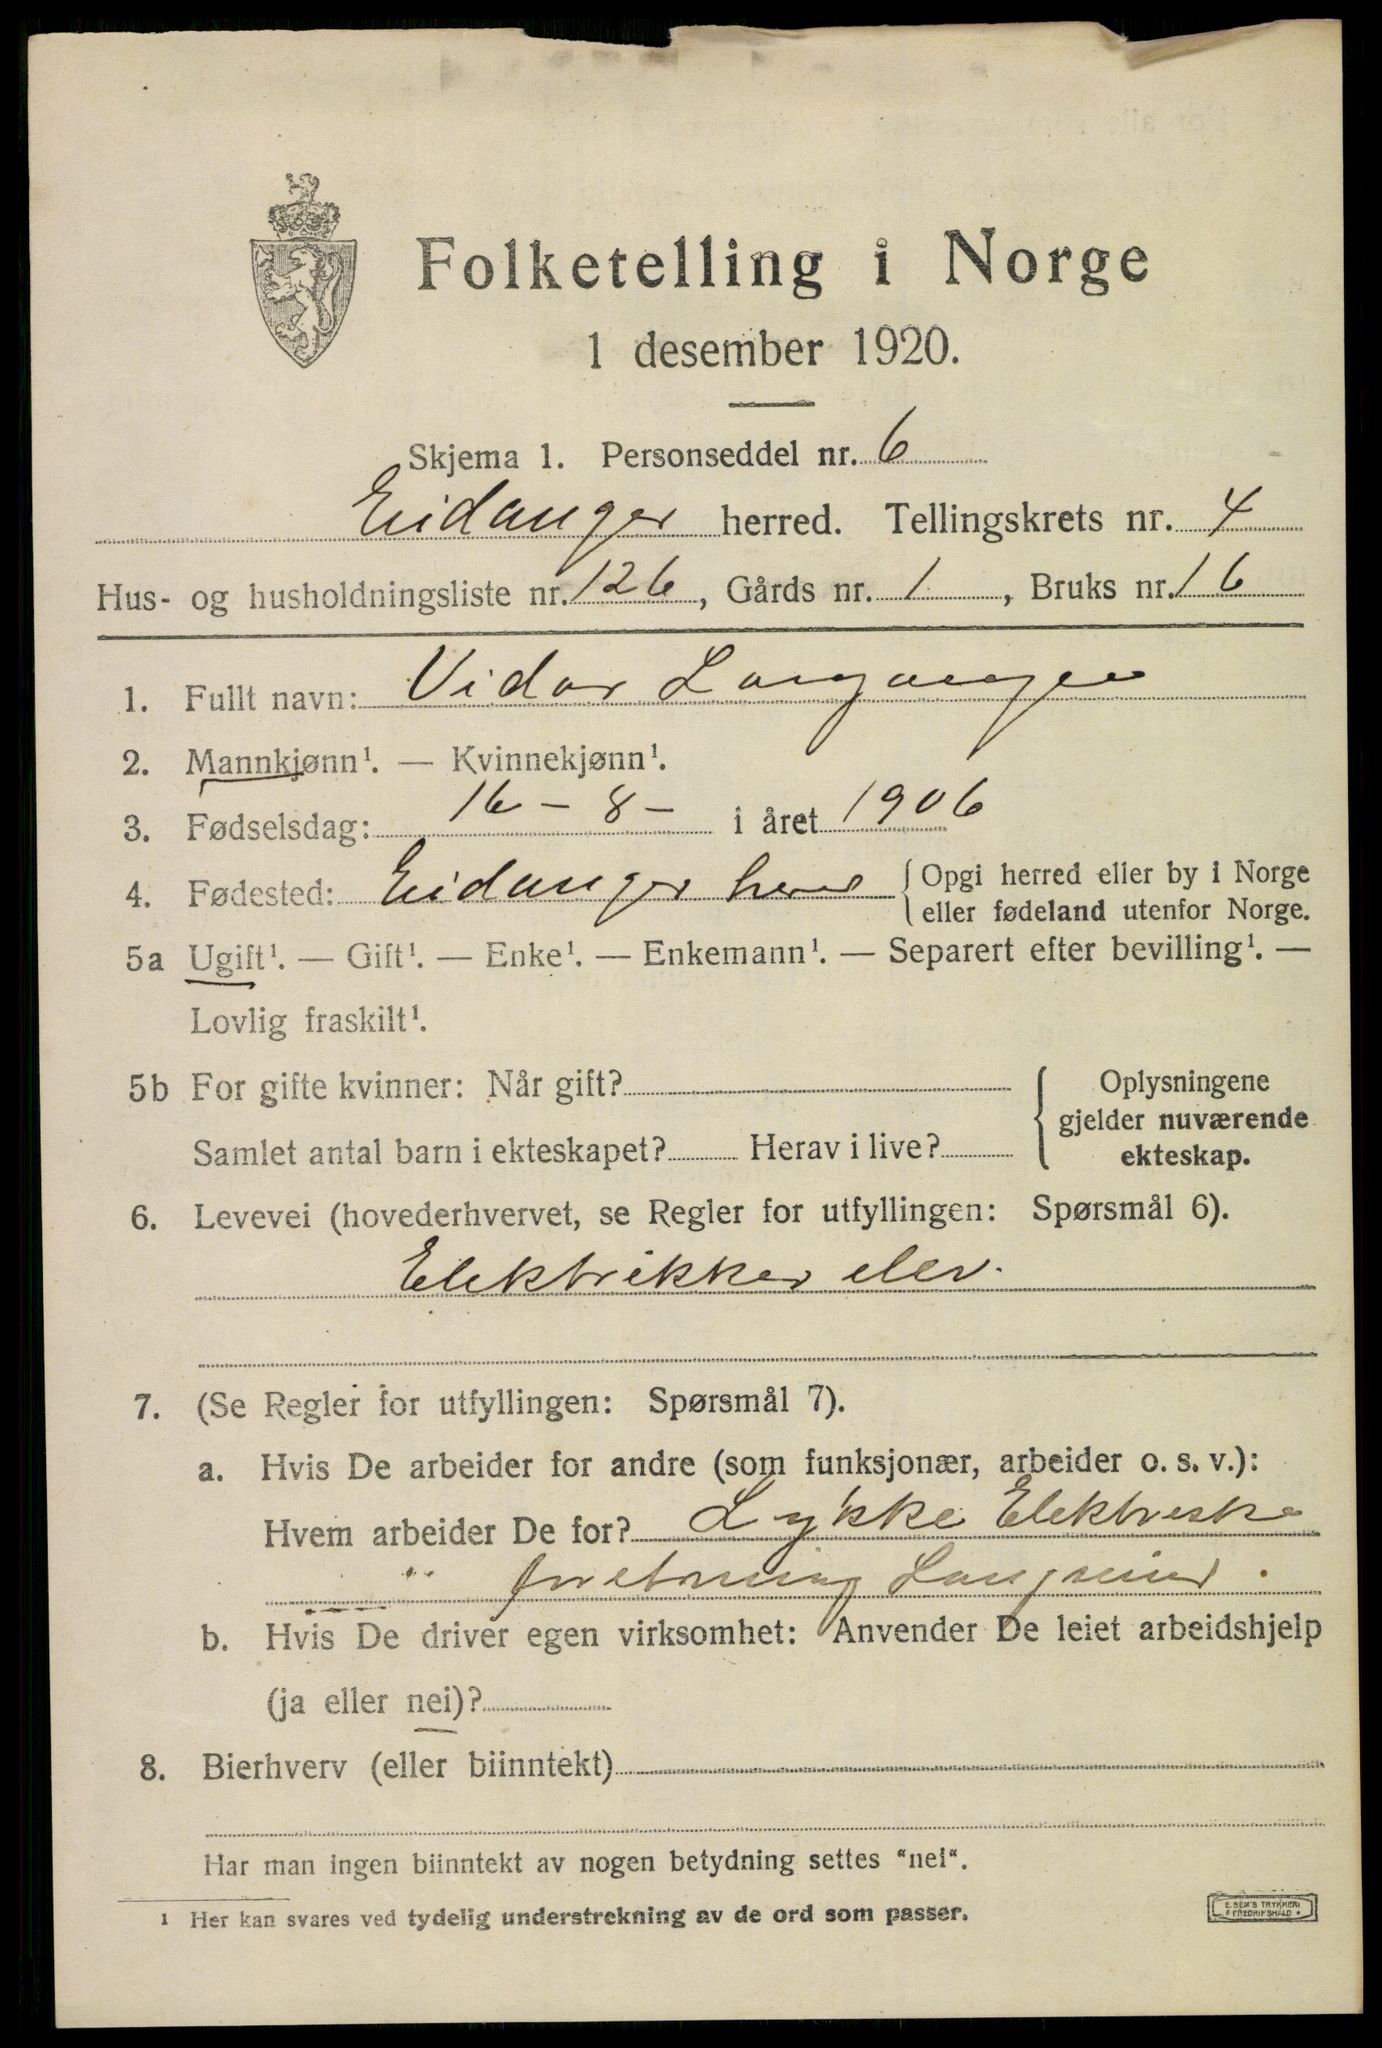 Folketelling i Norge
1 desember 1920.
Skjema 1. Personseddel nr. 6
Eidanger herred. Tellingskrets nr. 4
Hus- og husholdningsliste nr. 126, Gårds nr. 1, Bruks nr. 16
1. Fullt navn: Vidar Langangen
2. Mannkjønn¹. — Kvinnekjønn¹.
3. Fødselsdag: 16 - 8 - i året 1906
4. Fødested: Eidanger herred { Opgi herred eller by i Norge
eller fødeland utenfor Norge.
5a Ugift¹. — Gift¹. — Enke¹. — Enkemann¹. — Separert efter bevilling¹. —
Lovlig fraskilt¹.
5b For gifte kvinner: Når gift?
Samlet antal barn i ekteskapet? Herav i live?
Oplysningene
gjelder nuværende
ekteskap.
6. Levevei (hovederhvervet, se Regler for utfyllingen: Spørsmål 6).
Elektrikker elev.
7. (Se Regler for utfyllingen: Spørsmål 7).
a. Hvis De arbeider for andre (som funksjonær, arbeider o. s. v.):
Hvem arbeider De for? Lykke Elektriske
forretning
b. Hvis De driver egen virksomhet: Anvender De leiet arbeidshjelp
(ja eller nei)?
8. Bierhverv (eller biinntekt)
Har man ingen biinntekt av nogen betydning settes "nei".
¹ Her kan svares ved tydelig understrekning av de ord som passer.
E. SEM'S TRYKKERI
FREDRIKSHALD